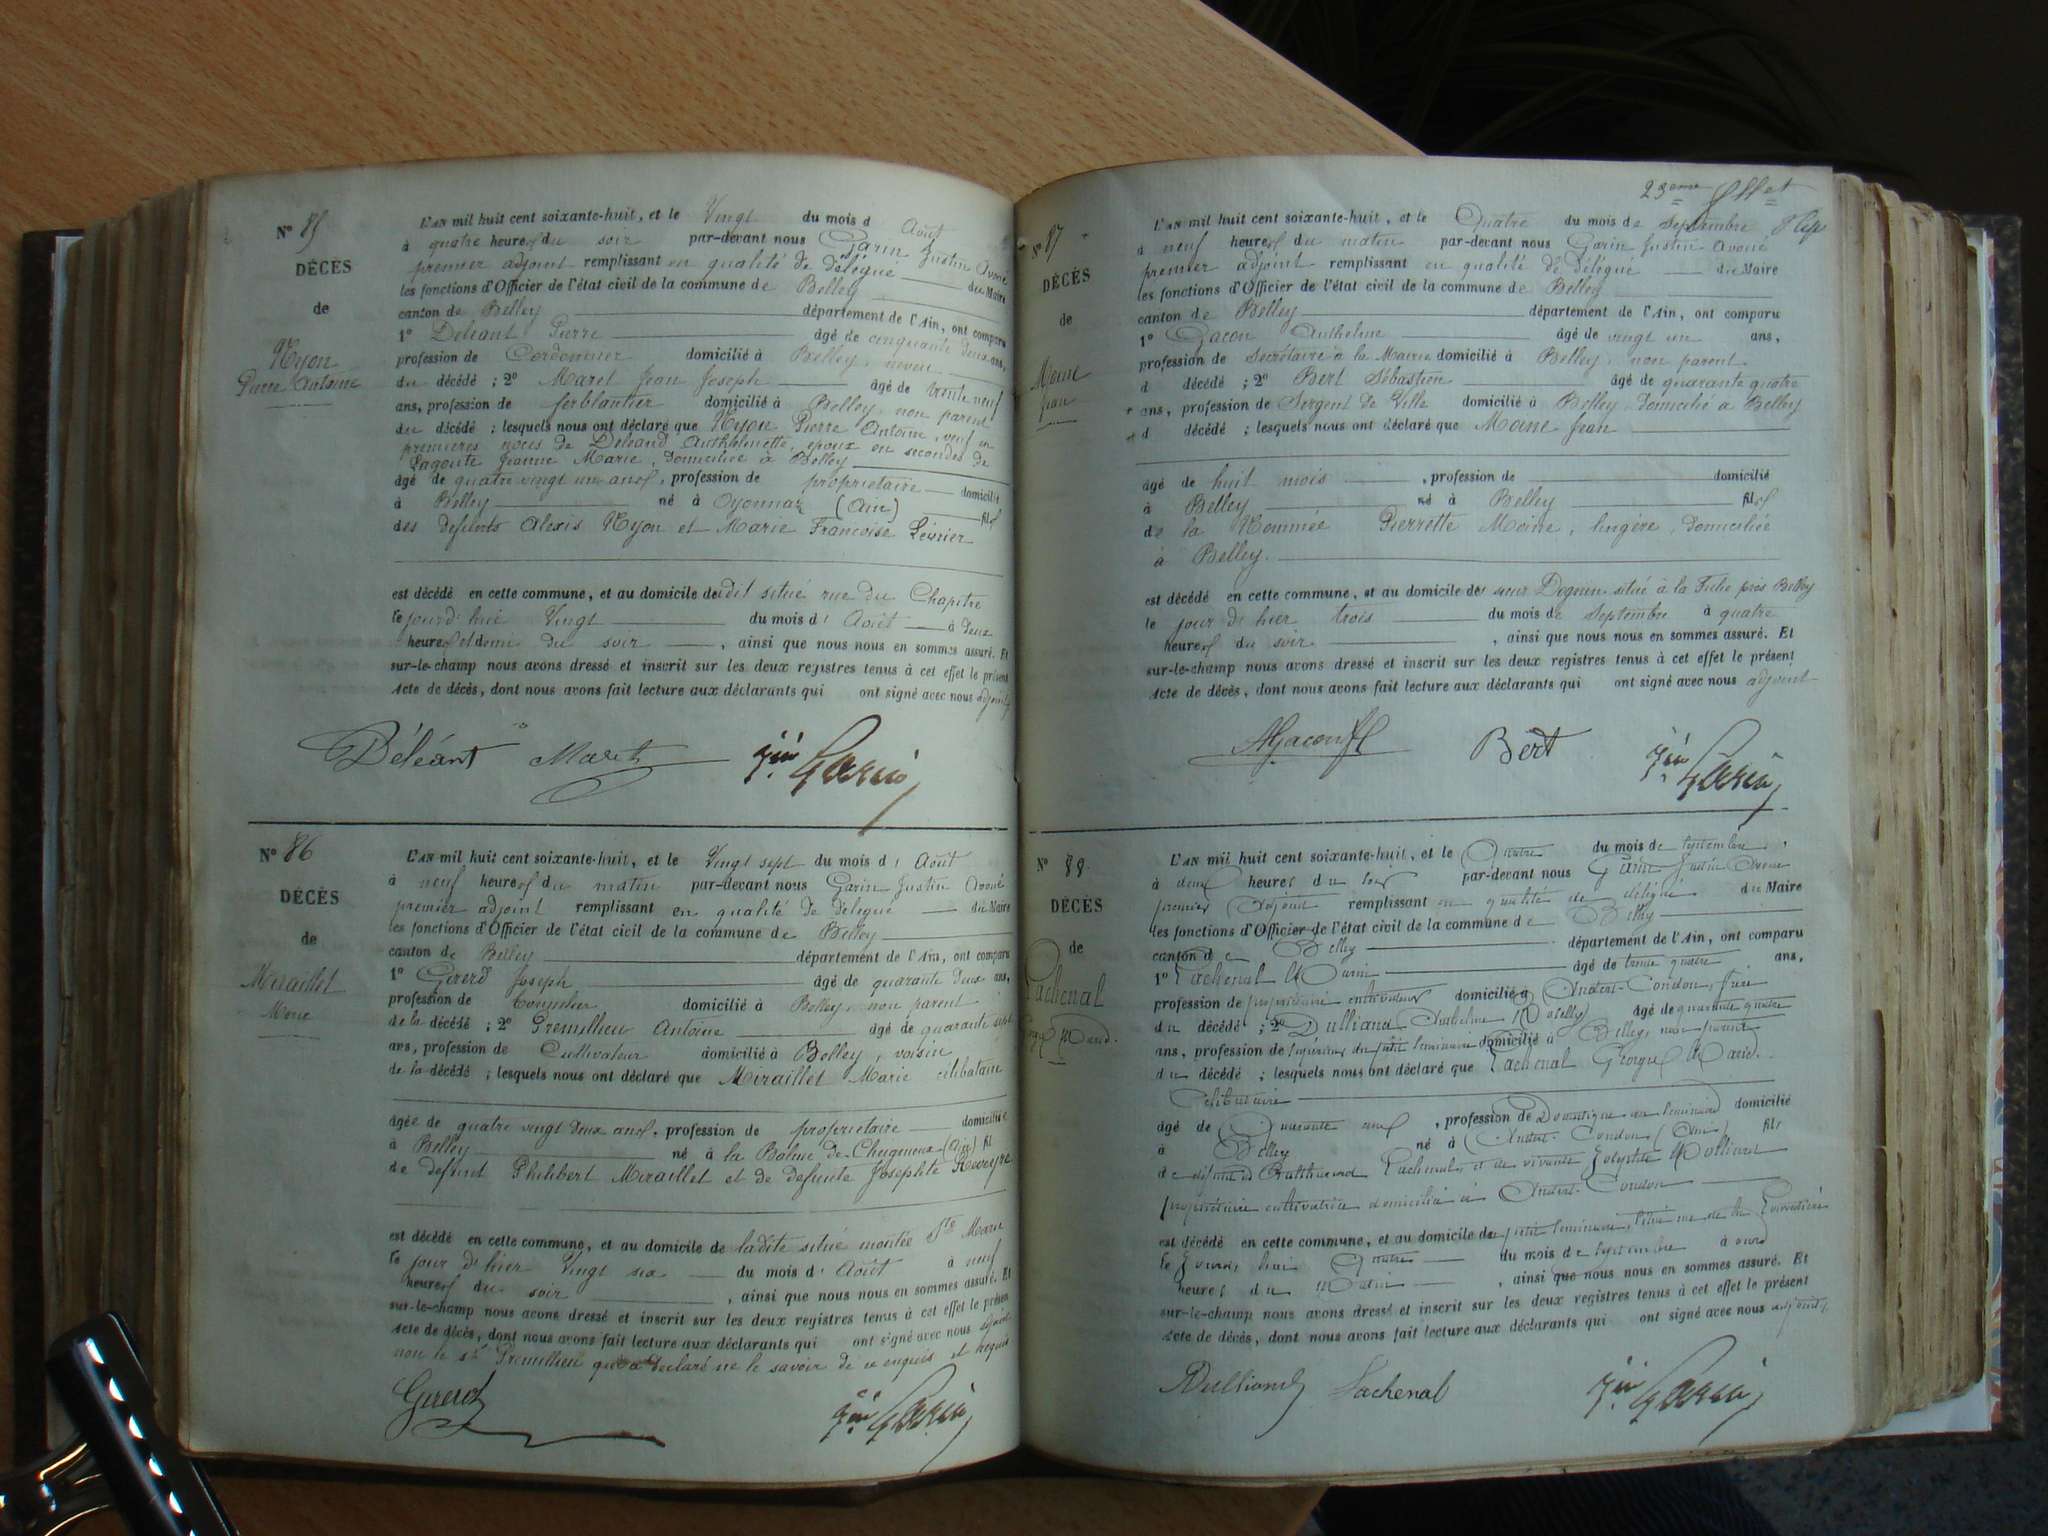 N° 85
DÉCÈS
de
Nyon
Pierre Antoine
L'AN mil huit cent soixante-huit, et le Vingt du mois d' Août
à quatre heures du soir par-devant nous Garin Justin Avoué
premier adjoint remplissant en qualité de délégué du Maire
les fonctions d'Officier de l'état civil de la commune de Belley
canton de Belley département de l'Ain, ont comparu
1° Deléant Pierre âgé de cinquante deux ans,
profession de Cordonnier domicilié à Belley, neveu
du décédé ; 2° Maret Jean Joseph âgé de trente neuf
ans, profession de ferblantier domicilié à Belley, non parent
du décédé ; lesquels nous ont déclaré que Nyon Pierre Antoine, veuf en
premières noces de Deléand Anthelmette, époux en secondes de
Lagoute Jeanne Marie, domicilié à Belley
âgé de quatre vingt un ans, profession de propriétaire domicilié
à Belley né à Oyonnax (Ain) fils
des defunts Alexis Nyon et Marie Françoise Levrier
est décédé en cette commune, et au domicile dudit situé rue du Chapitre
le jour d'hui Vingt du mois d' Août à deux
heures et demi du soir, ainsi que nous nous en sommes assuré. Et
sur-le-champ nous avons dressé et inscrit sur les deux registres tenus à cet effet le présent
acte de décès, dont nous avons fait lecture aux déclarants qui ont signé avec nous adjoint
Déléant Maret Jin Garin
N° 86
DÉCÈS
de
Miraillet
Marie
L'AN mil huit cent soixante-huit, et le Vingt sept du mois d' Août
à neuf heures du matin par-devant nous Garin Justin Avoué
premier adjoint remplissant en qualité de délégué du Maire
les fonctions d'Officier de l'état civil de la commune de Belley
canton de Belley département de l'Ain, ont comparu
1° Girerd Joseph âgé de quarante deux ans,
profession de domicilié à Belley, non parent
de la décédé ; 2° Premillieu Antoine âgé de quarante sept
ans, profession de Cultivateur domicilié à Belley, voisin
de la décédé ; lesquels nous ont déclaré que Miraillet Marie célibataire
âgée de quatre vingt deux ans, profession de propriétaire domiciliée
à Belley né à la Balme de (Ain) fil
de defunt Philibert Miraillet et de defunte Josephte
est décédé en cette commune, et au domicile de ladite situé montée Ste Marie
le jour d'hier Vingt six du mois d' Août à neuf
heures du soir, ainsi que nous nous en sommes assuré. Et
sur-le-champ nous avons dressé et inscrit sur les deux registres tenus à cet effet le présent
acte de décès, dont nous avons fait lecture aux déclarants qui ont signé avec nous adjoint
non le sr Premillieu qui a déclaré ne le savoir de ce enquis et requis
Girerd Jin Garin
23eme
N° 87
DÉCÈS
de
Moine
Jean
L'AN mil huit cent soixante-huit, et le Quatre du mois de Septembre
à neuf heures du matin par-devant nous Garin Justin Avoué
premier adjoint remplissant en qualité de délégué du Maire
les fonctions d'Officier de l'état civil de la commune de Belley
canton de Belley département de l'Ain, ont comparu
1° Gacon Anthelme âgé de vingt un ans,
profession de Secrétaire à la Mairie domicilié à Belley, non parent
d décédé ; 2° Bert Sébastien âgé de quarante quatre
ans, profession de Sergent de Ville domicilié à Belley, domicilié à Belley
d décédé ; lesquels nous ont déclaré que Moine Jean
âgé de huit mois, profession de domicilié
à Belley né à Belley fils
de la Nommée Pierrette Moine, lingère, domiciliée
à Belley.
est décédé en cette commune, et au domicile du sieur situé à la près Belley
le jour d'hier trois du mois de Septembre à quatre
heures du soir, ainsi que nous nous en sommes assuré. Et
sur-le-champ nous avons dressé et inscrit sur les deux registres tenus à cet effet le présent
acte de décès, dont nous avons fait lecture aux déclarants qui ont signé avec nous adjoint
AGacon Bert Jin Garin
N° 88
DÉCÈS
de
Pachenal
L'AN mil huit cent soixante-huit, et le Quatre du mois de Septembre
à deux heures du soir par-devant nous Garin Justin Avoué
premier Adjoint remplissant en qualité de délégué du Maire
les fonctions d'Officier de l'état civil de la commune de Belley
canton de Belley département de l'Ain, ont comparu
1° Pachenal âgé de trente quatre ans,
profession de propriétaire cultivateur domicilié à Andert-Condon, frère
du décédé ; 2° Dulliand Anthelme âgé de quarante quatre
ans, profession de Supérieur du petit Séminaire domicilié à Belley, non parent
du décédé ; lesquels nous ont déclaré que Pachenal
Célibataire
âgé de Quarante ans, profession de Domestique au Séminaire domicilié
à Belley né à Andert-Condon (Ain) fils
de défunt Balthazard Pachenal, et de vivante
propriétaire cultivatrice domiciliée à Andert-Condon
est décédé en cette commune, et au domicile du petit Séminaire, situé rue de la
le jourd'hui Quatre du mois de Septembre à onze
heures du Matin, ainsi que nous nous en sommes assuré. Et
sur-le-champ nous avons dressé et inscrit sur les deux registres tenus à cet effet le présent
acte de décès, dont nous avons fait lecture aux déclarants qui ont signé avec nous adjoint
Dulliand Pachenal Jin Garin